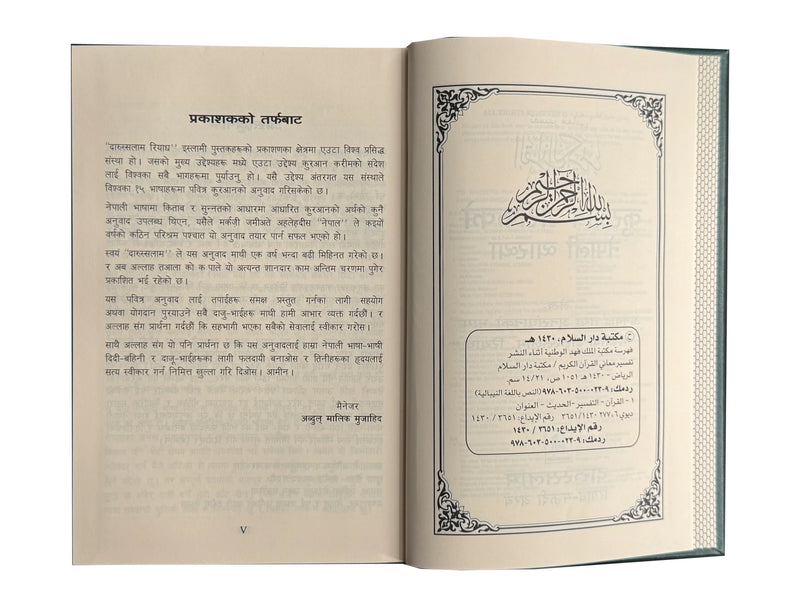 प्रकाशकको तर्फबाट
"दारुस्सलाम रियाध" इस्लामी पुस्तकहरूको प्रकाशणका क्षेत्रमा एउटा विश्व प्रसिद्ध
संस्था हो। जसको मुख्य उद्देश्यहरू मध्ये एउटा उद्देश्य कुरआन करीमको संदेश
लाई विश्वका सबै भागहरूमा पुर्याउनु हो। यसै उद्देश्य अंतरगत यस संस्थाले
विश्वका १५ भाषाहरूमा पवित्र कूरआनको अनुवाद गरिसकेको छ।
नेपाली भाषामा किताब र सुन्नतको आधारमा आधारित कूरआनको अर्थको कुनै
अनुवाद उपलब्ध थिएन, यसैले मर्कजी जमीअते अहलेहदीस "नेपाल" ले कइयौं
वर्षको कठिन परिश्रम पश्चात यो अनुवाद तयार पार्न सफल भएको हो।
स्वयं "दारुस्सलाम" ले यस अनुवाद माथी एक वर्ष भन्दा बढी मिहिनत गरेको छ।
र अब अल्लाह तआला को क पाले यो अत्यन्त शानदार काम अन्तिम चरणमा पुगेर
प्रकाशित भई रहेको छ।
यस पवित्र अनुवाद लाई तपाईहरू समक्ष प्रस्तुत गर्नका लागी सहयोग
अथवा योगदान पुरयाउने सबै दाजु-भाईहरू माथी हामी आभार व्यक्त गर्दछौं। र
अल्लाह संग प्रार्थना गर्दछौं कि सहभागी भएका सबैको सेवालाई स्वीकार गरोस।
साथै अल्लाह संग यो पनि प्रार्थना छ कि यस अनुवादलाई हाम्रा नेपाली भाषा-भाषी
दिदी-बहिनी र दाजू-भाईहरूका लागी फलदायी बनाओस र तिनीहरूका हृदयलाई
सत्य स्वीकार गर्न निमित्त खुल्ला गरि दिओस। आमीन।
मैनेजर
अब्दुल् मालिक मुजाहिद
V
بسم الله الرحمن الرحيم
© مكتبة دار السلام، ١٤٣٠ هـ
فهرسة مكتبة الملك فهد الوطنية أثناء النشر
تفسير معاني القرآن الكريم / مكتبة دار السلام
الرياض - ١٤٣٠ هـ ١٠٥١ ص، ١٤/٢١ سم.
ردمك: ٩-٠٢٣-٥٠٠-٦٠٣-٩٧٨ (النص باللغة النيبالية)
١ - القرآن - التفسير - الحديث - العنوان
ديوي ٢٧٧،٦ ٣٦٥١/١٤٣٠ رقم الإيداع: ٣٦٥١ / ١٤٣٠
رقم الإيداع: ٣٦٥١ / ١٤٣٠
ردمك: ٩-٠٢٣-٥٠٠-٦٠٣-٩٧٨